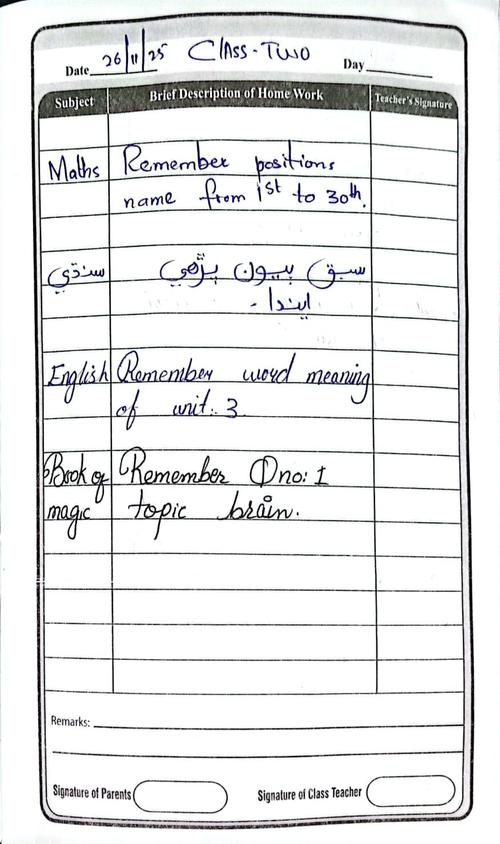 Date 26/11/25 Class-Two Day
Subject Brief Description of Home Work Teacher's Signature
Maths Remember positions
name from 1st to 30th.
سنڌي سبق ٻيون پڙهي
ايندا۔
English Remember word meaning
of unit: 3
Book of Remember Q no: 1
magic topic brain.
Remarks:
Signature of Parents Signature of Class Teacher